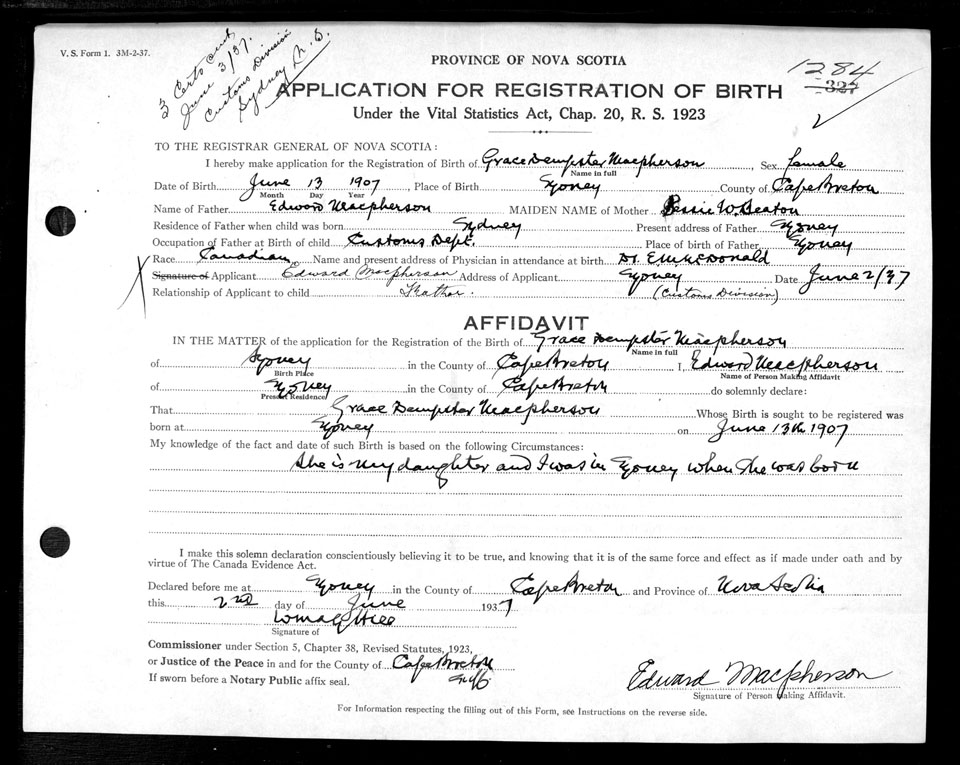 V. S. Form 1. 3M-2-37.
3 Certs out
June 3/37.
Customs Division
Sydney N. S.
PROVINCE OF NOVA SCOTIA
1284
327
APPLICATION FOR REGISTRATION OF BIRTH
Under the Vital Statistics Act, Chap. 20, R. S. 1923
TO THE REGISTRAR GENERAL OF NOVA SCOTIA:
I hereby make application for the Registration of Birth of Grace Dempster Macpherson, Sex female
Name in full
Date of Birth June 13 1907, Place of Birth Sydney County of Cape Breton
Month Day Year
Name of Father Edward Macpherson MAIDEN NAME of Mother Bessie W. Beaton
Residence of Father when child was born Sydney Present address of Father Sydney
Occupation of Father at Birth of child Customs Dept. Place of birth of Father Sydney
Race Canadian Name and present address of Physician in attendance at birth Dr. E McDonald
X Signature of Applicant Edward Macpherson Address of Applicant Sydney Date June 2/37
Relationship of Applicant to child Father. (Customs Division)
AFFIDAVIT
IN THE MATTER of the application for the Registration of the Birth of Grace Dempster Macpherson
Name in full
of Sydney in the County of Cape Breton I, Edward Macpherson
Birth Place Name of Person Making Affidavit
of Sydney in the County of Cape Breton do solemnly declare:
Present Residence
That Grace Dempster Macpherson Whose Birth is sought to be registered was
born at Sydney on June 13th 1907
My knowledge of the fact and date of such Birth is based on the following Circumstances:
She is my daughter and I was in Sydney when she was born
I make this solemn declaration conscientiously believing it to be true, and knowing that it is of the same force and effect as if made under oath and by
virtue of The Canada Evidence Act.
Declared before me at Sydney in the County of Cape Breton and Province of Nova Scotia
this 2nd day of June 1937
Signature of
Commissioner under Section 5, Chapter 38, Revised Statutes, 1923,
or Justice of the Peace in and for the County of Cape Breton
If sworn before a Notary Public affix seal.
Edward Macpherson
Signature of Person Making Affidavit.
For Information respecting the filling out of this Form, see Instructions on the reverse side.